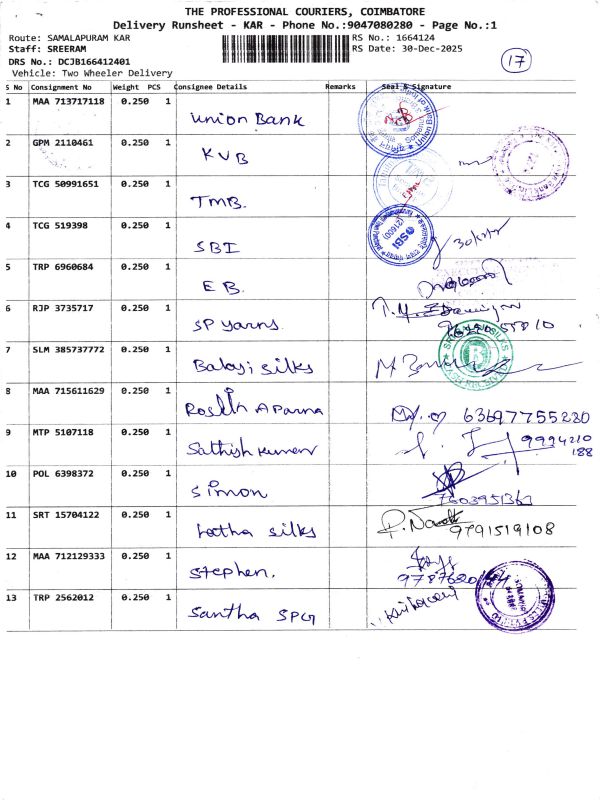 THE PROFESSIONAL COURIERS, COIMBATORE
Delivery Runsheet - KAR - Phone No.:9047080280 - Page No.:1
Route: SAMALAPURAM KAR RS No.: 1664124
Staff: SREERAM RS Date: 30-Dec-2025
DRS No.: DCJB166412401 17
Vehicle: Two Wheeler Delivery
S No Consignment No Weight PCS Consignee Details Remarks Seal & Signature
1 MAA 713717118 0.250 1 Union Bank
2 GPM 2110461 0.250 1 KVB
3 TCG 50991651 0.250 1 TMB.
4 TCG 519398 0.250 1 SBI
5 TRP 6960684 0.250 1 EB.
6 RJP 3735717 0.250 1 SP yarns.
7 SLM 385737772 0.250 1 Balaji silks
8 MAA 715611629 0.250 1 Aparna 63697755220
9 MTP 5107118 0.250 1 Sathish kumar 9994210
188
10 POL 6398372 0.250 1 Simon
11 SRT 15704122 0.250 1 silks 9791519108
12 MAA 712129333 0.250 1 Stephen.
13 TRP 2562012 0.250 1 Santha SPG